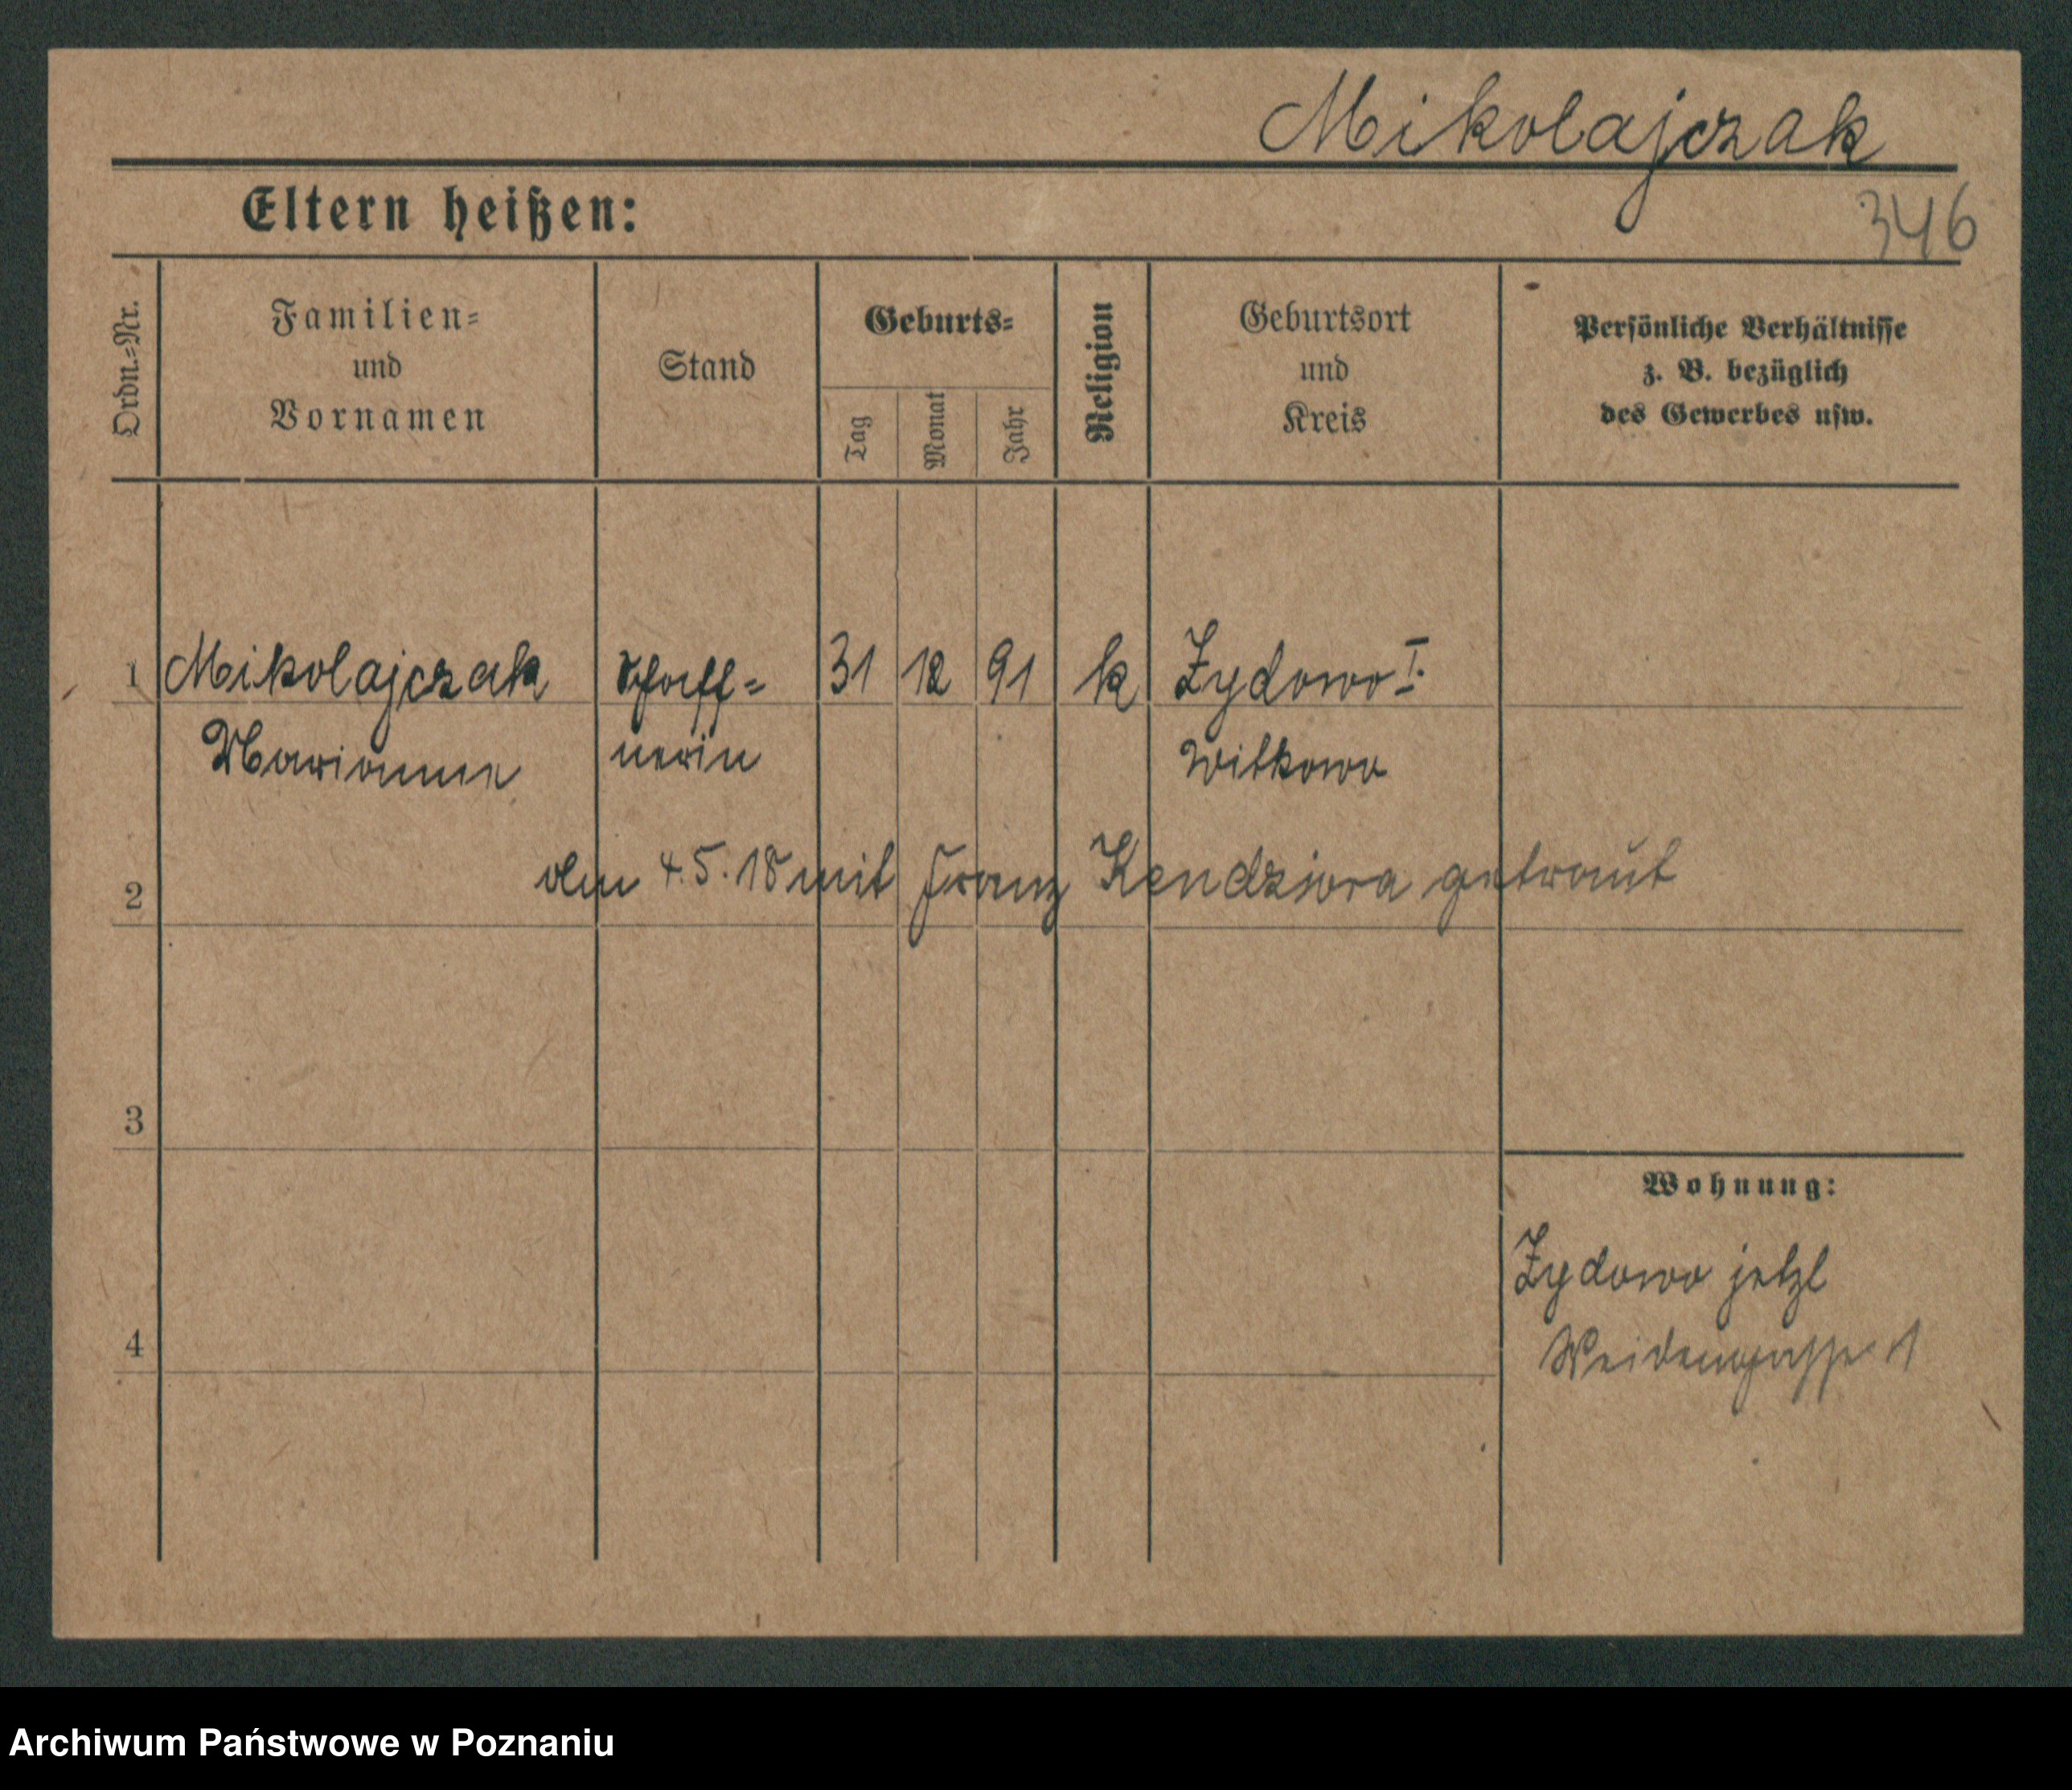 Mikolajczak
Eltern heißen:
346
Ordn.=Nr.
Familien=
und
Vornamen
Stand
Geburts=
Tag
Monat
Jahr
Religion
Geburtsort
und
Kreis
Persönliche Verhältnisse
z. B. bezüglich
des Gewerbes usw.
1 Mikolajczak Schaff= 31 12 91 k Zydowo I.
Marianne nerin Witkowo
2 am 4.5.18 mit Franz Kendziora getraut
3
Wohnung:
Zydowo jetzt
4 Weidengasse 1
Archiwum Państwowe w Poznaniu